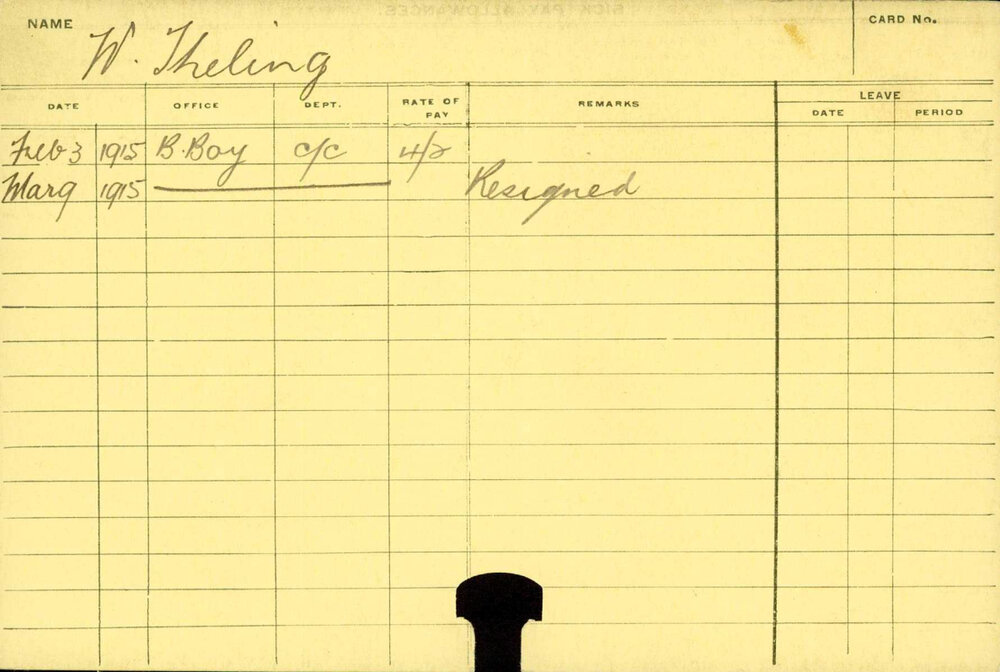 NAME W. Theling CARD No.
DATE OFFICE DEPT. RATE OF PAY REMARKS LEAVE
DATE PERIOD
Feb 3 1915 B. Boy c/c 4/2
Mar 9 1915 Resigned